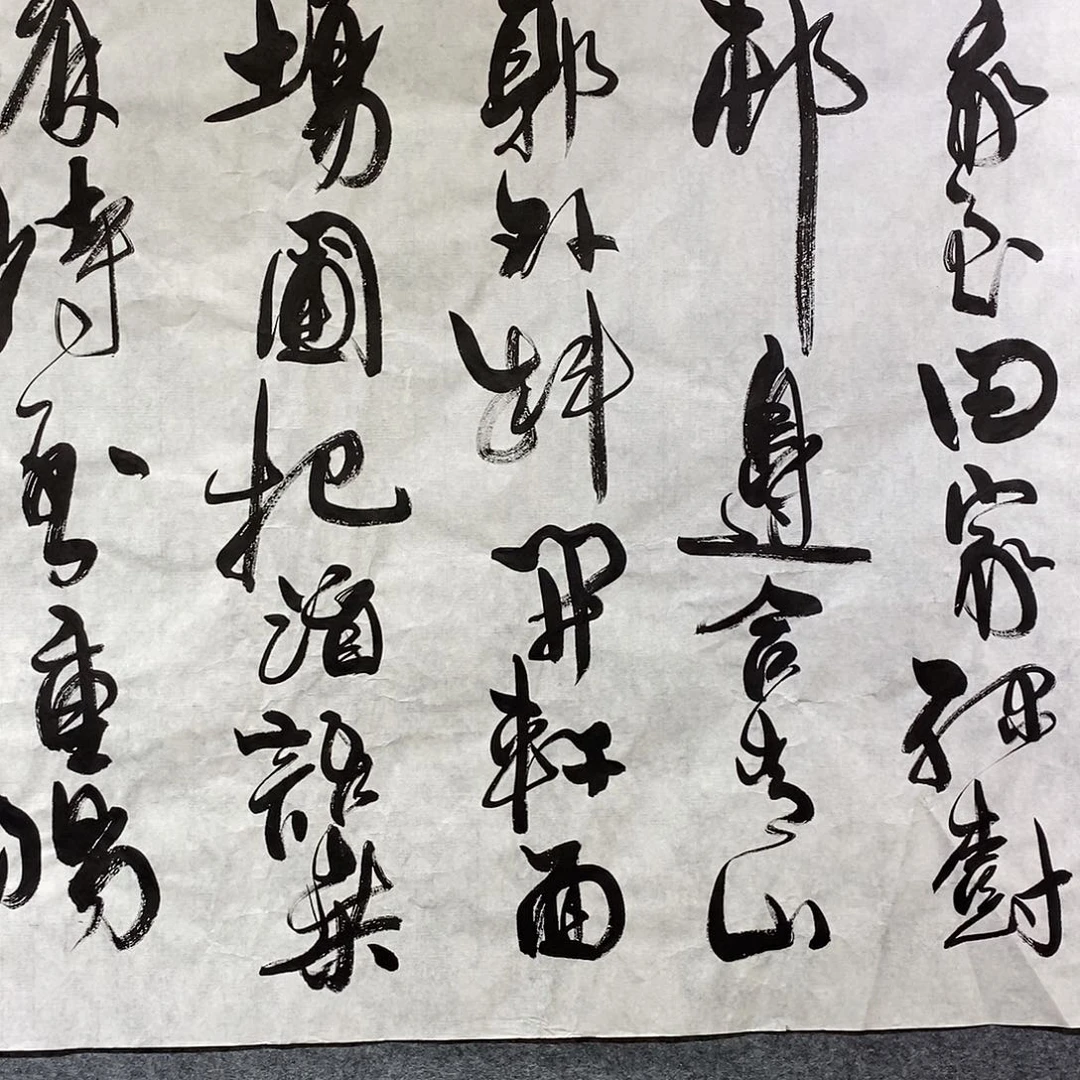 我至田家緑樹
邨邊合青山
郭外斜開軒面
場圃把酒話桑
麻待到重陽